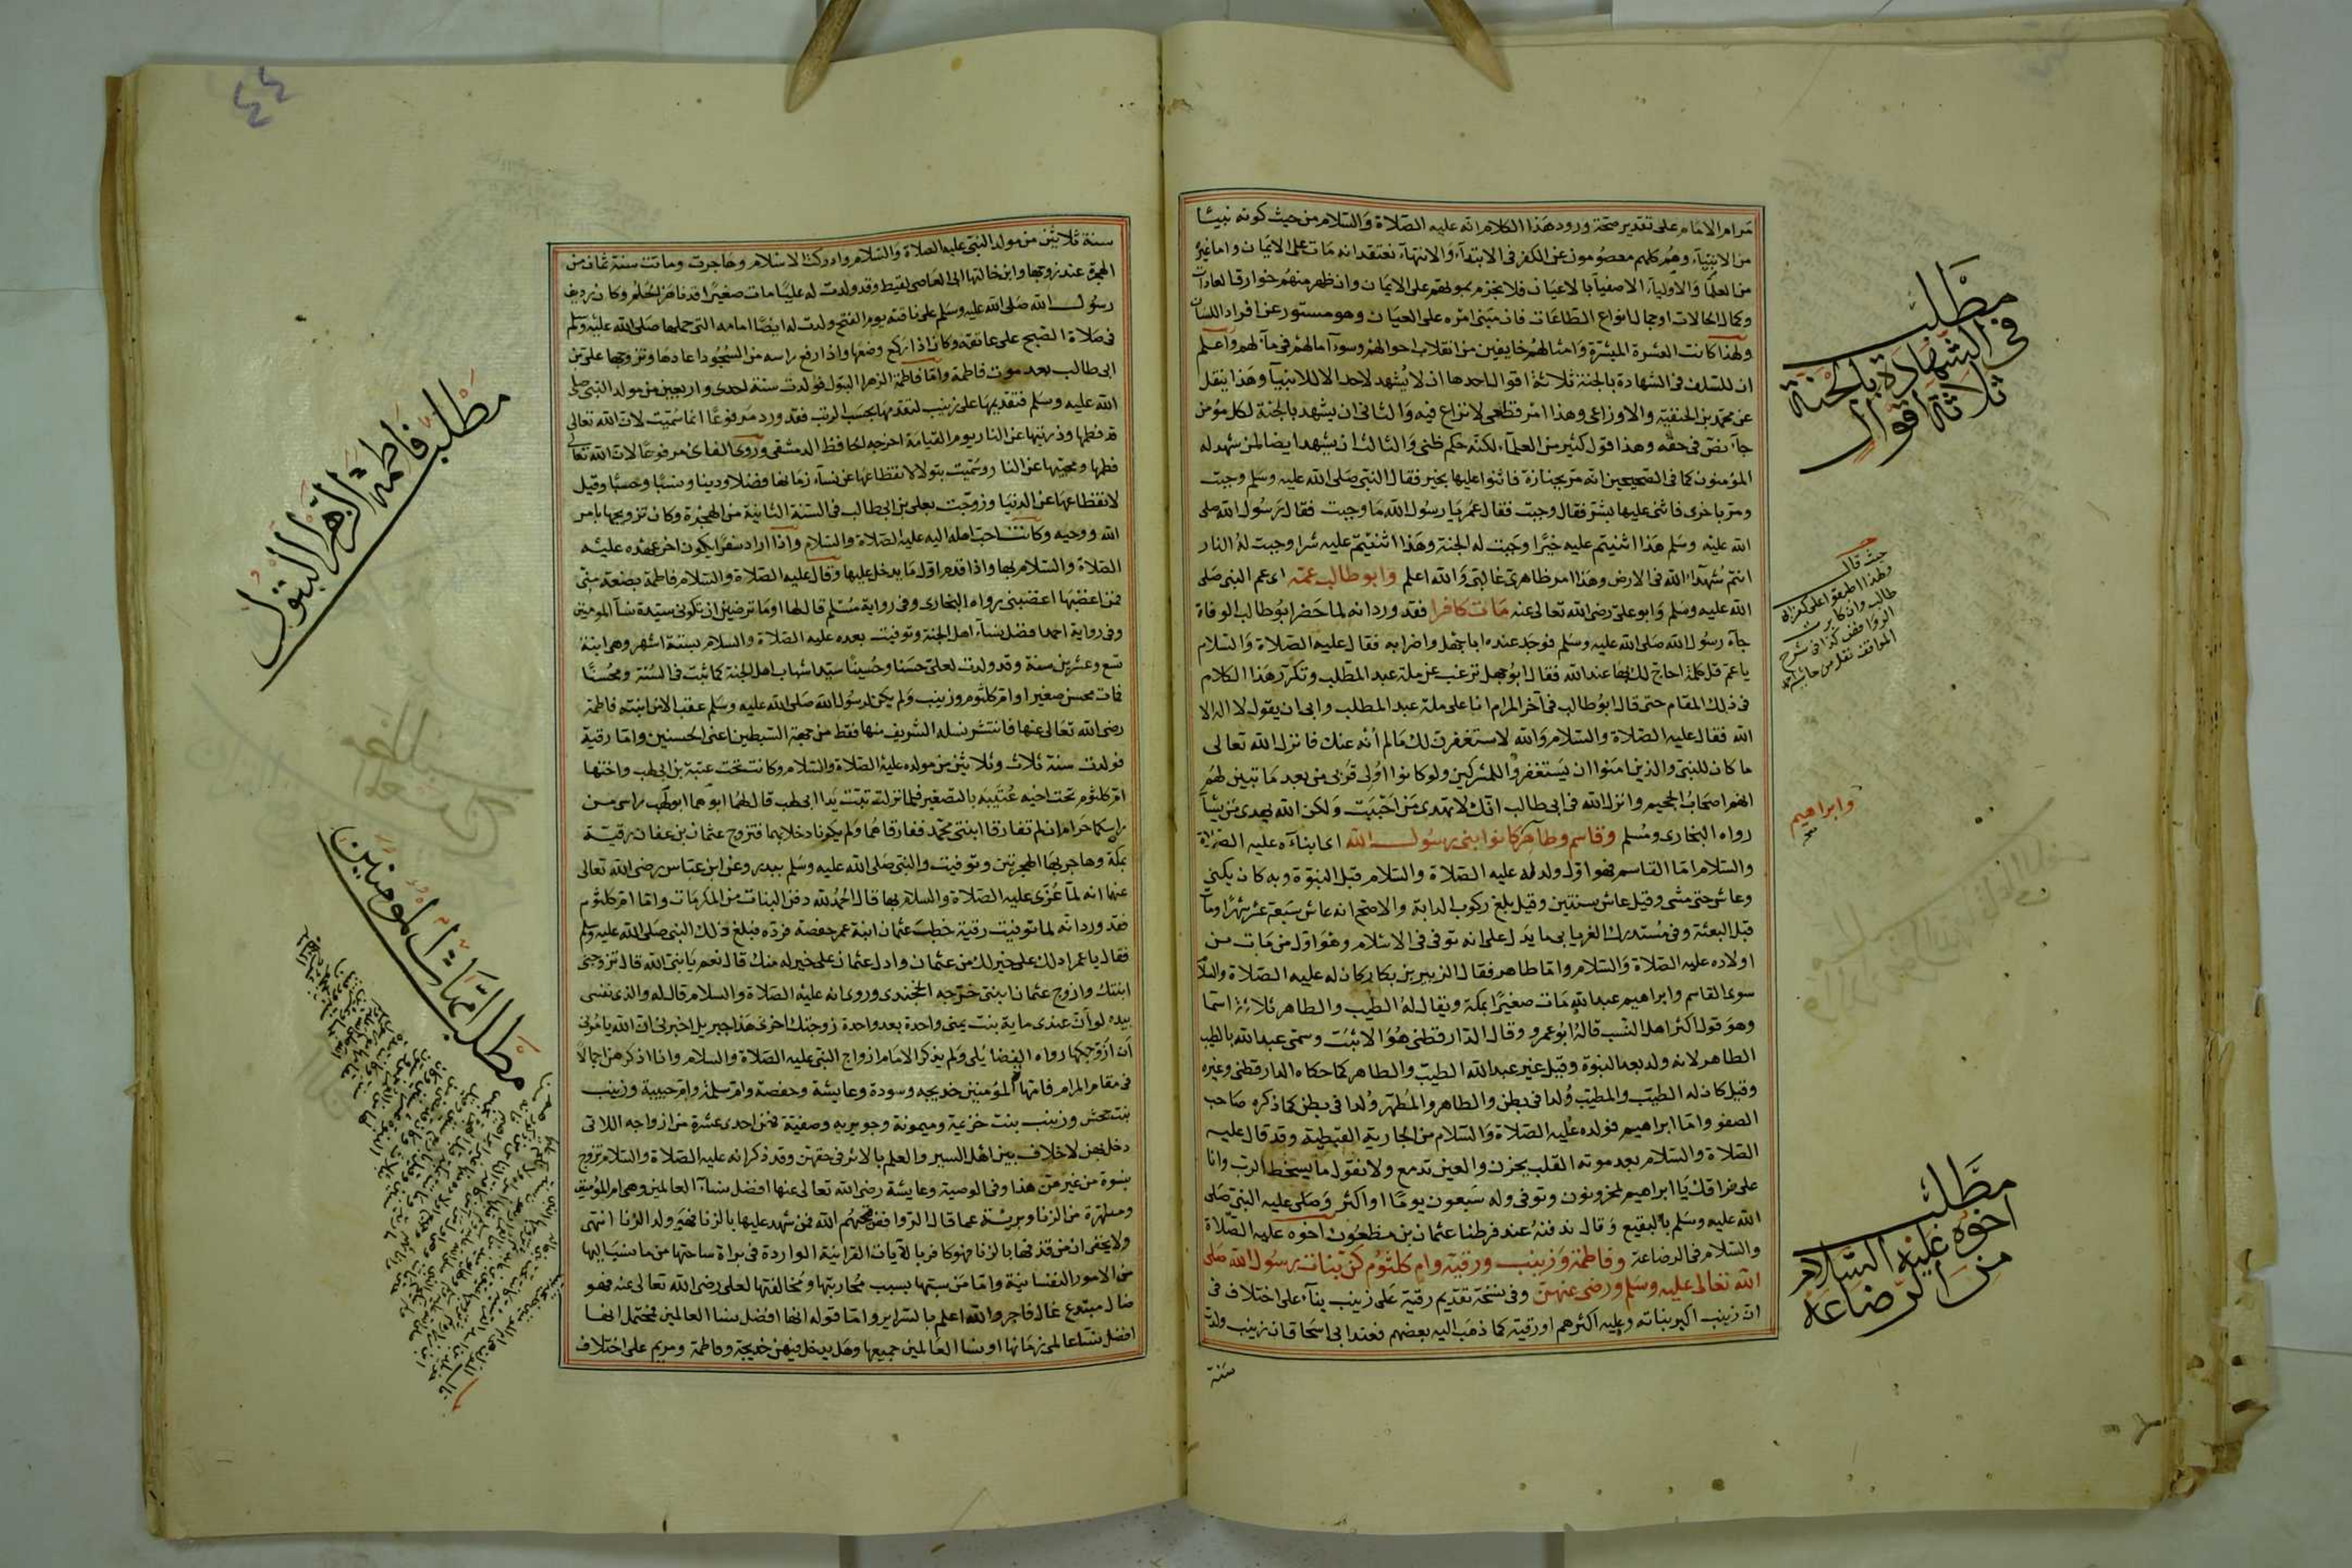 مرام الامام على تقدير صحة ورود هذا الكلام انه عليه الصلاة والسلام من حيث كونه نبيا
من الانبياء وهم كلهم معصومون عن الكفر فى الابتداء والانتهاء نعتقد انه مات على الايمان واما غيره
من العلماء والاولياء الاصفياء بالاعيان فلا نجزم بموتهم على الايمان وان ظهر منهم خوارق العادات
وكمال الحالات وجمال انواع الطاعات فان مبنى امره على العيان وهو مستور عن افراد اللسان
ولهذا كانت العشرة المبشرة وامثالهم خايفين من انقلاب احوالهم وسوء آمالهم فى مآلهم واعلم
ان للسلف فى الشهادة بالجنة ثلاثة اقوال احدها ان لا يشهد لاحد الا للانبياء وهذا ينقل
عن محمد بن الحنفية والاوزاعى وهذا امر قطعى لا نزاع فيه والثانى ان يشهد بالجنة لكل مؤمن
جاء نص فى حقه وهذا قول كثير من العلماء لكنه حكم ظنى والثالث ان يشهد ايضا لمن شهد له
المؤمنون كما فى الصحيحين انه مر بجنازة فاثنوا عليها بخير فقال النبى صلى الله عليه وسلم وجبت
ومر باخرى فاثنى عليها بشر فقال وجبت فقال عمر يا رسول الله ما وجبت فقال رسول الله صلى
الله عليه وسلم هذا اثنيتم عليه خيرا وجبت له الجنة وهذا اثنيتم عليه شرا وجبت له النار
انتم شهداء الله فى الارض وهذا امر ظاهرى غالبى والله اعلم وابو طالب عمه اى عم النبى صلى
الله عليه وسلم وابو على رضى الله تعالى عنه مات كافرا فقد ورد انه لما حضر ابو طالب الوفاة
جاء رسول الله صلى الله عليه وسلم فوجد عنده ابا جهل واضرابه فقال عليه الصلاة والسلام
يا عم قل كلمة احاج لك بها عند الله فقال ابو جهل ترغب عن ملة عبد المطلب وتكرر هذا الكلام
فى ذلك المقام حتى قال ابو طالب فى آخر المرام انا على ملة عبد المطلب وابى ان يقول لا اله الا
الله فقال عليه الصلاة والسلام والله لاستغفرن لك ما لم أنه عنك فانزل الله تعالى
ما كان للنبى والذين امنوا ان يستغفروا للمشركين ولو كانوا اولى قربى من بعد ما تبين لهم
انهم اصحاب الجحيم وانزل الله فى ابى طالب انك لا تهدى من احببت ولكن الله يهدى من يشاء
رواه البخارى ومسلم وقاسم وطاهر كانوا بنى رسول الله اى ابناءه عليه الصلاة
والسلام اما القاسم فهو اول ولد له عليه الصلاة والسلام قبل النبوة وبه كان يكنى
وعاش حتى مشى وقيل عاش سنتين وقيل بلغ ركوب الدابة والاصح انه عاش سبعة عشر شهرا ومات
قبل البعثة وفى مستدرك الفريابى ما يدل على انه توفى فى الاسلام وهو اول من مات من
اولاده عليه الصلاة والسلام واما طاهر فقال الزبير بن بكار كان له عليه الصلاة والسلام
سوى القاسم وابراهيم عبد الله مات صغيرا بمكة ويقال له الطيب والطاهر ثلاثة اسما
وهو قول اكثر اهل النسب قاله ابو عمرو وقال الدارقطنى هو الاثبت وسمى عبد الله بالطيب
الطاهر لانه ولد بعد النبوة وقيل غير عبد الله الطيب والطاهر كما حكاه الدارقطنى وغيره
وقيل كان له الطيب والمطيب ولدا فى بطن والطاهر والمطهر ولدا فى بطن كما ذكره صاحب
الصفو واما ابراهيم فولده عليه الصلاة والسلام من الجارية القبطية وقد قال عليه
الصلاة والسلام بعد موته القلب يحزن والعين تدمع ولا نقول ما يسخط الرب وانا
على فراقك يا ابراهيم لمحزونون وتوفى وله سبعون يوما او اكثر وصلى عليه النبى صلى
الله عليه وسلم بالبقيع وقال ندفنه عند فرطنا عثمان بن مظعون اخوه عليه الصلاة
والسلام فى الرضاعة وفاطمة وزينب ورقية وام كلثوم كن بنات رسول الله صلى
الله تعالى عليه وسلم ورضى عنهن وفى نسخة تقديم رقية على زينب بناء على اختلاف فى
ان زينب اكبر بناته وعليه اكثرهم او رقية كما ذهب اليه بعضهم فعند ابى اسحاق ان زينب ولدت
سنة
مطلب
فى الشهادة بالجنة
ثلاثة اقوال
حيث قال
ولهذا اطبقوا على كفر ابى
طالب وان كابرت
الروافض كذا فى شرح
المواقف نقل من
وابراهيم
صح
مطلب
اخوه عليه السلام
من الرضاعه
٤٤
سنة ثلاثين من مولد النبى عليه الصلاة والسلام وادركت الاسلام وهاجرت وماتت سنة ثمان من
الهجرة عند زوجها وابن خالتها ابى العاصى لقيط وقد ولدت له عليا مات صغيرا قد ناهز الحلم وكان رديف
رسول الله صلى الله عليه وسلم على ناقته يوم الفتح ولدت له ايضا امامه التى حملها صلى الله عليه وسلم
فى صلاة الصبح على عاتقه وكان اذا ركع وضعها واذا رفع راسه من السجود اعادها وتزوجها على بن
ابى طالب بعد موت فاطمة واما فاطمة الزهرا البتول فولدت سنة احدى واربعين من مولد النبى صلى
الله عليه وسلم فتقديمها على زينب لتقدمها بحسب الرتب فقد ورد مرفوعا انما سميت لان الله تعالى
قد فطمها وذريتها عن النار يوم القيامة اخرجه الحافظ الدمشقى وروى الغسانى مرفوعا لان الله تعالى
فطمها ومحبيها عن النار وسميت بتولا لانقطاعها عن نساء زمانها فضلا ودينا ونسبا وحسبا وقيل
لانقطاعها عن الدنيا وزوجت بعلى بن ابى طالب فى السنة الثانية من الهجرة وكان تزويجها بامر
الله ووحيه وكانت احب اهله اليه عليه الصلاة والسلام واذا اراد سفرا يكون اخر عهده عليه
الصلاة والسلام بها واذا قدم اول ما يدخل عليها وقال عليه الصلاة والسلام فاطمة بضعة منى
فمن اغضبها اغضبنى رواه البخارى وفى رواية مسلم قال لها اوما ترضين ان تكونى سيدة نساء المومنين
وفى رواية احمد افضل نساء اهل الجنة وتوفيت بعده عليه الصلاة والسلام بستة اشهر وهى ابنة
تسع وعشرين سنة وقد ولدت لعلى حسنا وحسينا سيدا شباب اهل الجنة كما ثبت فى السنة ومحسنا
فمات محسن صغيرا وام كلثوم وزينب ولم يكن لرسول الله صلى الله عليه وسلم عقب الا من ابنته فاطمة
رضى الله تعالى عنها فانتشر نسله الشريف منها فقط من جهة السبطين اعنى الحسنين واما رقية
فولدت سنة ثلاث وثلاثين من مولده عليه الصلاة والسلام وكانت تحت عتبة بن ابى لهب واختها
ام كلثوم تحت اخيه عتيبة بالتصغير فلما نزلت تبت يدا ابى لهب قال لهما ابوهما ابو لهب راسى من
راسكما حرام ان لم تفارقا ابنتى محمد ففارقاهما ولم يكونا دخلا بهما فتزوج عثمان بن عفان رقية
بمكة وهاجر بها الهجرتين وتوفيت والنبى صلى الله عليه وسلم ببدر وعن ابن عباس رضى الله تعالى
عنهما انه لما عزى عليه الصلاة والسلام بها قال الحمد لله دفن البنات من المكرمات واما ام كلثوم
فقد ورد انه لما توفيت رقية خطب عثمان ابنة عمر حفصة فرده فبلغ ذلك النبى صلى الله عليه وسلم
فقال يا عمر ادلك على خير لك من عثمان وادل عثمان على خير له منك قال نعم يا نبى الله قال تزوجنى
ابنتك وازوج عثمان ابنتى خرجه الخجندى وروى انه عليه الصلاة والسلام قال له والذى نفسى
بيده لو ان عندى ماية بنت يمتن واحدة بعد واحدة زوجتك اخرى هذا جبريل اخبرنى ان الله يامرنى
ان ازوجكها رواه الفضائلى ولم يذكر الامام ازواج النبى عليه الصلاة والسلام وانا اذكرهن اجمالا
فى مقام المرام فامهات المؤمنين خديجه وسودة وعايشة وحفصة وام سلمة وام حبيبة وزينب
بنت جحش وزينب بنت خزيمة وميمونة وجويريه وصفية فهن احدى عشرة من ازواجه اللاتى
دخل بهن لا خلاف بين اهل السير والعلم بالاثر فى حقهن وقد ذكر انه عليه الصلاة والسلام تزوج
نسوة من غيرهن هذا وفى الوصية وعايشة رضى الله تعالى عنها افضل نساء العالمين وهى ام المؤمنين
ومطهرة من الزنا وبريئة عما قال الروافض فمن شهد عليها بالزنا فهو ولد الزنا انتهى
ولا يخفى ان من قذفها بالزنا فهو كافر بالآيات القرانية الواردة فى براة ساحتها من ما نسب اليها
من الامور النفسانية واما من سبها بسبب محاربتها ومخالفتها لعلى رضى الله تعالى عنه فهو
ضال مبتدع غال فاجر والله اعلم بالسراير واما قوله انها افضل نسا العالمين فيحتمل انها
افضل نساء عالمى زمانها او نسا العالمين جميعها وهل يدخل فيهن خديجة وفاطمة ومريم على اختلاف
مطلب فاطمة الزهرا البتول
مطلب امهات المومنين